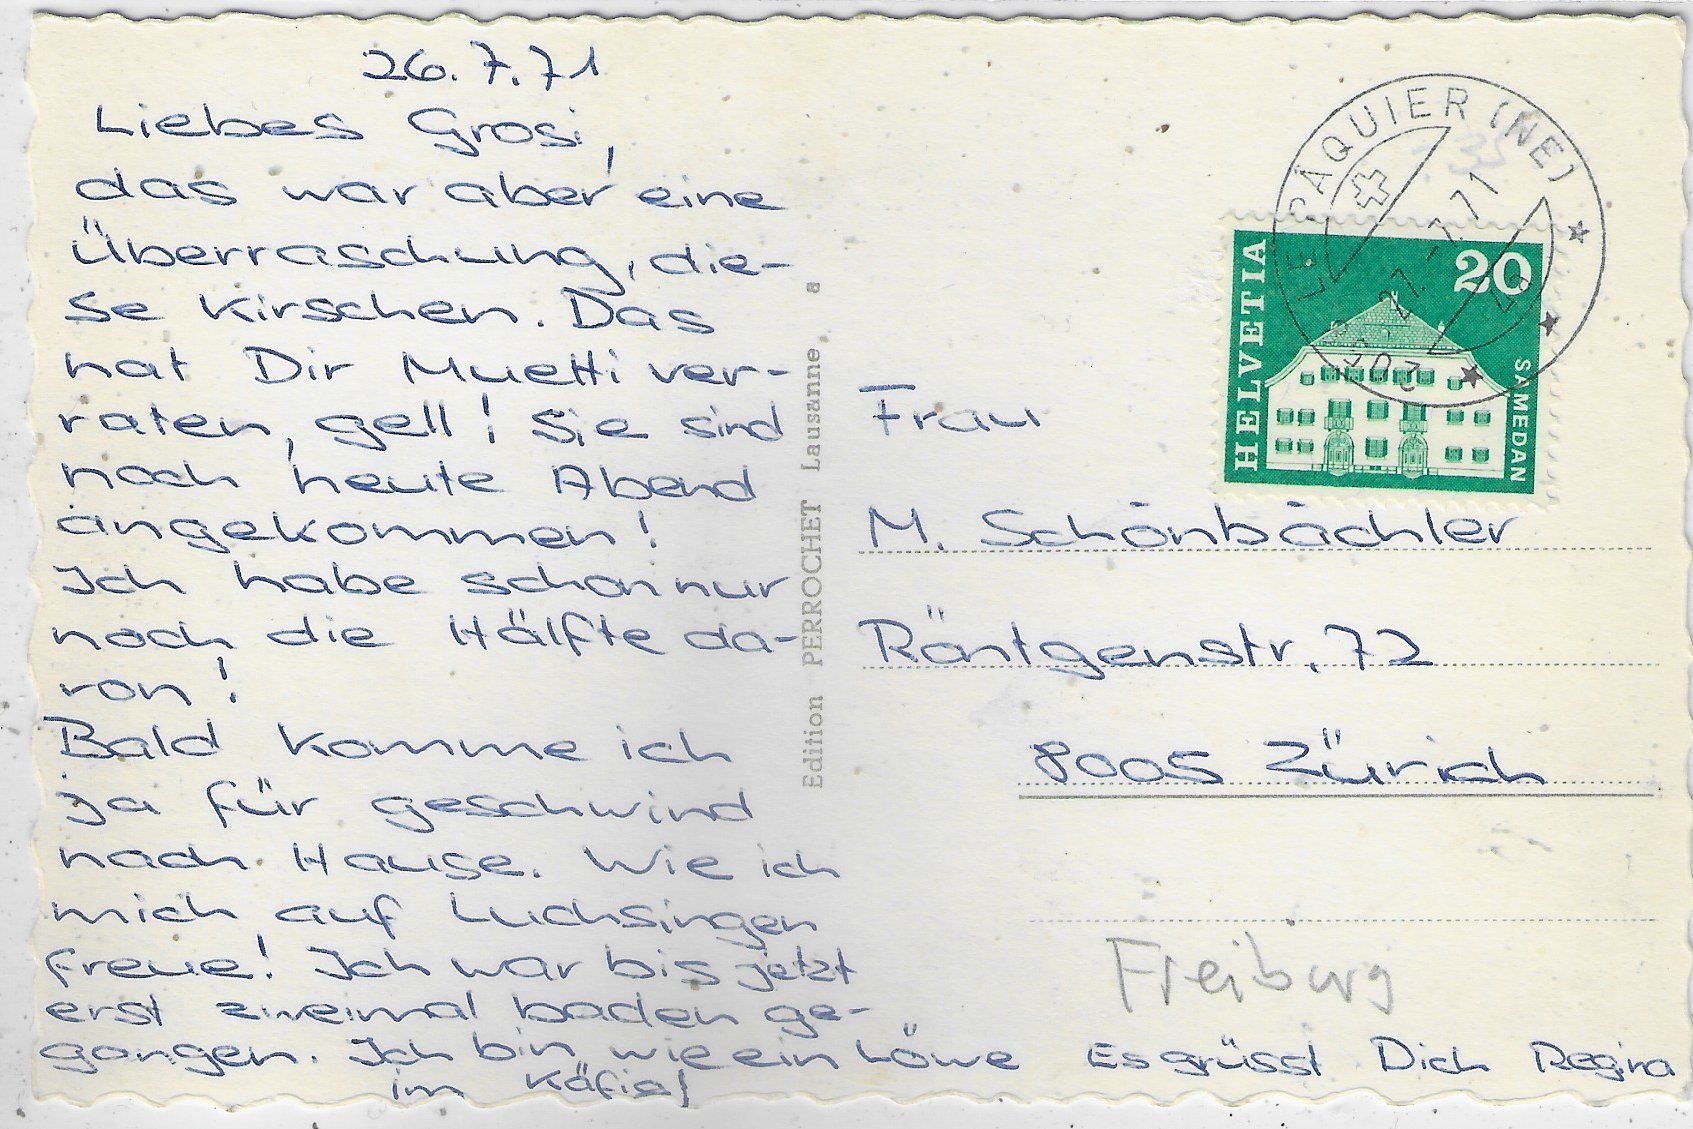 26.7.71
Liebes Grosi,
das war aber eine
Überraschung, die-
se Kirschen. Das
hat Dir Muetti ver-
raten, gell! Sie sind
noch heute Abend
angekommen!
Ich habe schon nur
noch die Hälfte da-
von!
Bald komme ich
ja für geschwind
nach Hause. Wie ich
mich auf Luchsingen
freue! Ich war bis jetzt
erst zweimal baden ge-
gangen. Ich bin wie ein Löwe
im Käfig!
Es grüsst Dich Regina
Edition PERROCHET Lausanne a
LE PÂQUIER (NE)
27.-7.71
HELVETIA
20
SAMEDAN
Frau
M. Schönbächler
Röntgenstr. 72
8005 Zürich
Freiburg